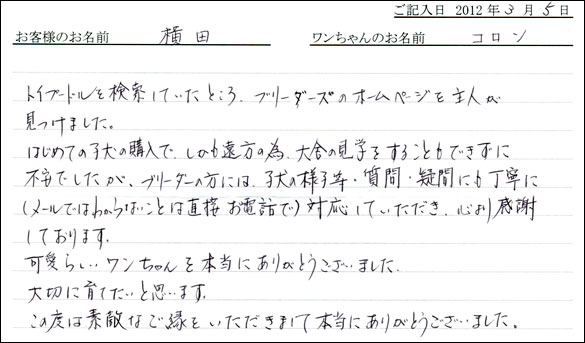 ご記入日 2012年3月5日
お客様のお名前 横田 ワンちゃんのお名前 コロン
トイプードルを検索していたところ、ブリーダーズのホームページを主人が
見つけました。
はじめての子犬の購入で、しかも遠方の為、犬舎の見学をすることもできずに
不安でしたが、ブリーダーの方には、子犬の様子等・質問・疑問にも丁寧に
(メールではわからないことは直接お電話で)対応していただき、心より感謝
しております。
可愛らしいワンちゃんを本当にありがとうございました。
大切に育てたいと思います。
この度は素敵なご縁をいただきまして本当にありがとうございました。